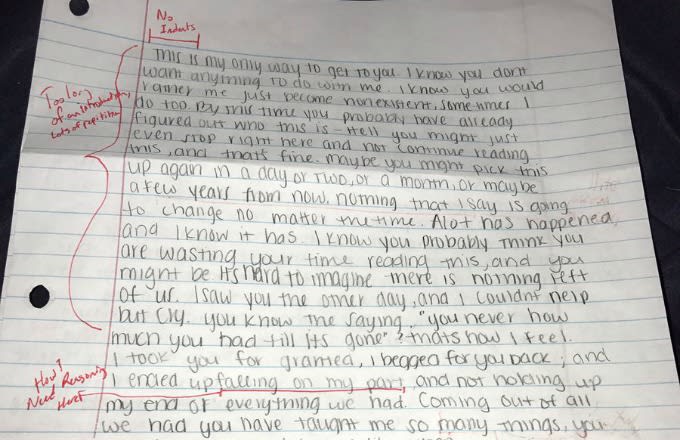 No
Indents
This is my only way to get to you. I know you dont
want anything to do with me. I know you would
rather me just become nonexistent, sometimes I
do too. By this time you probably have already
figured out who this is - Hell you might just
even stop right here and not continue reading
this, and thats fine. maybe you might pick this
up again in a day or two, or a month, or maybe
a few years from now. nothing that I say is going
to change no matter the time. Alot has happened,
and I know it has. I know you probably think you
are wasting your time reading this, and you
might be. Its hard to imagine there is nothing left
of us. I saw you the other day, and I couldnt help
but cry. you know the saying, "you never how
much you had till its gone"? thats how I feel.
I took you for granted, I begged for you back, and
I ended up falling on my part, and not holding up
my end of everything we had. Coming out of all
we had you have taught me so many things, you
Too long
of an introduction,
Lots of repetition
How?
Need Reasoning
Here!